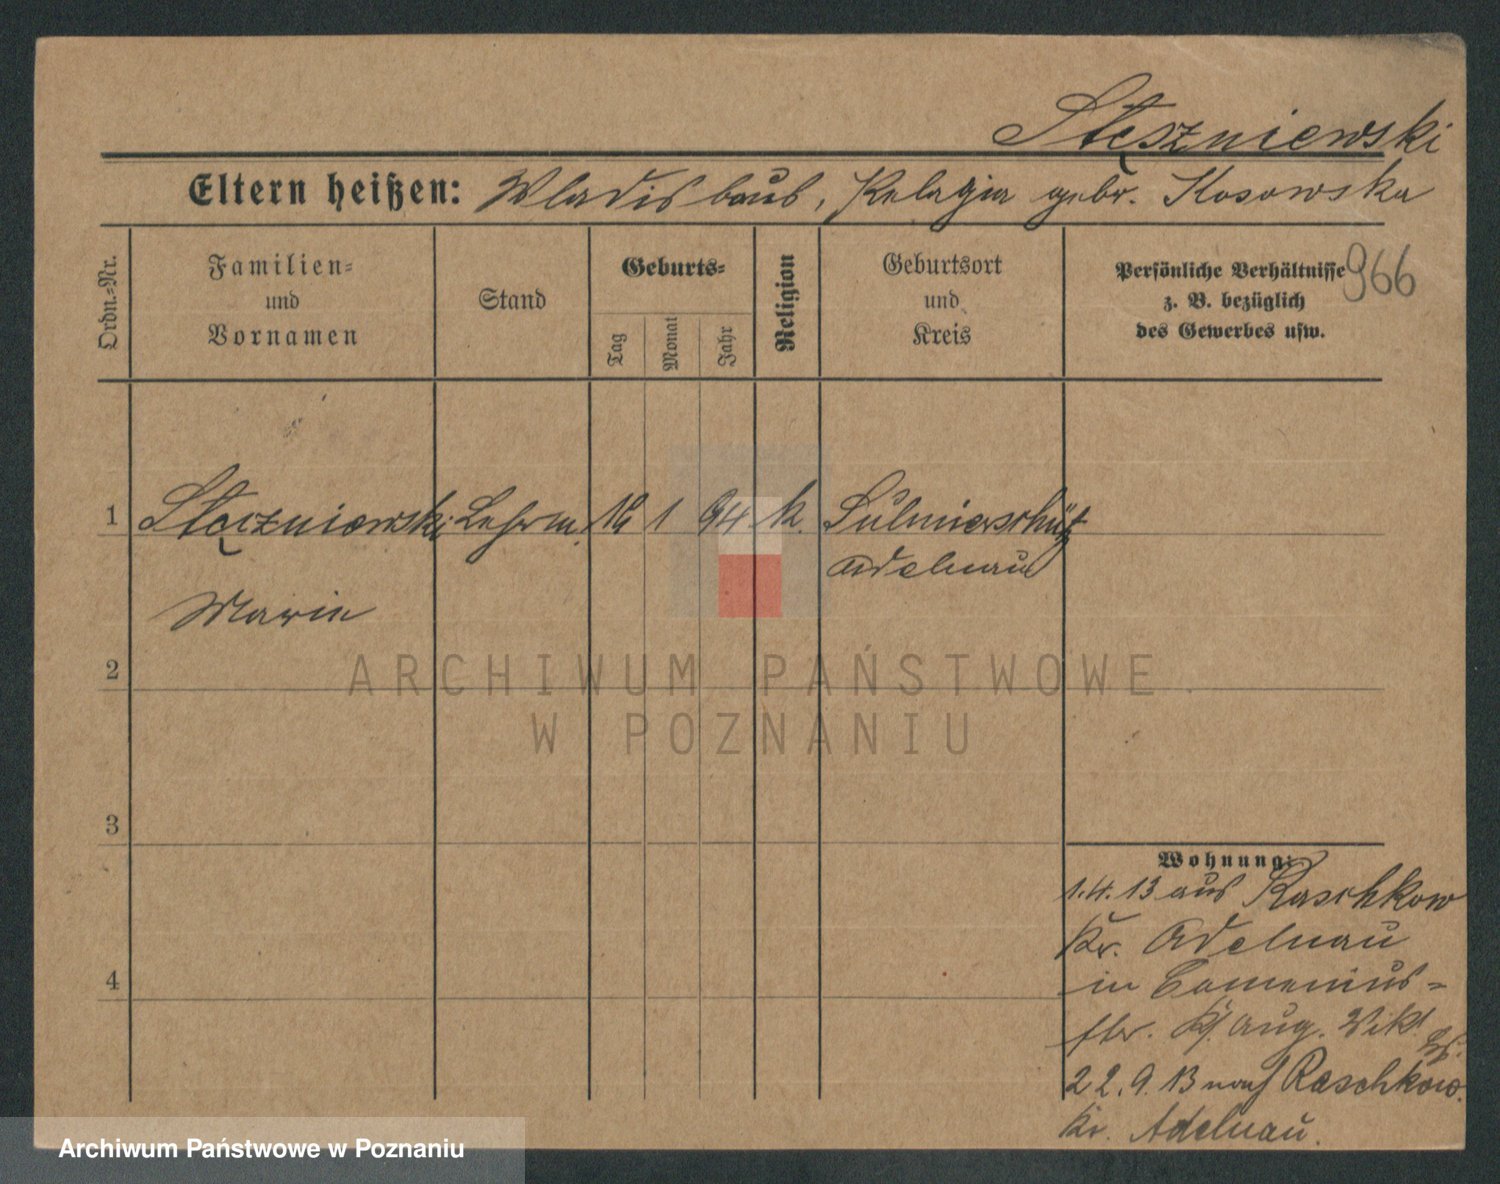 Stęszniewski
Eltern heißen: Wladislaus, Pelagia gebr. Kosowska
Ordn.-Nr.
Familien-
und
Vornamen
Stand
Geburts-
Tag
Monat
Jahr
Religion
Geburtsort
und
Kreis
Persönliche Verhältnisse
z. B. bezüglich
des Gewerbes usw.
966
1 Stęszniewski Lehrin. 1 94 k. Sulmierschütz
Adelnau
Marie
2
3
4
Wohnung:
1.4.13 aus Raschkow
Kr. Adelnau
in Comenius-
str. Aug. Vikt.
22.9.13 nach Raschkow.
Kr. Adelnau.
ARCHIWUM PAŃSTWOWE
W POZNANIU
Archiwum Państwowe w Poznaniu